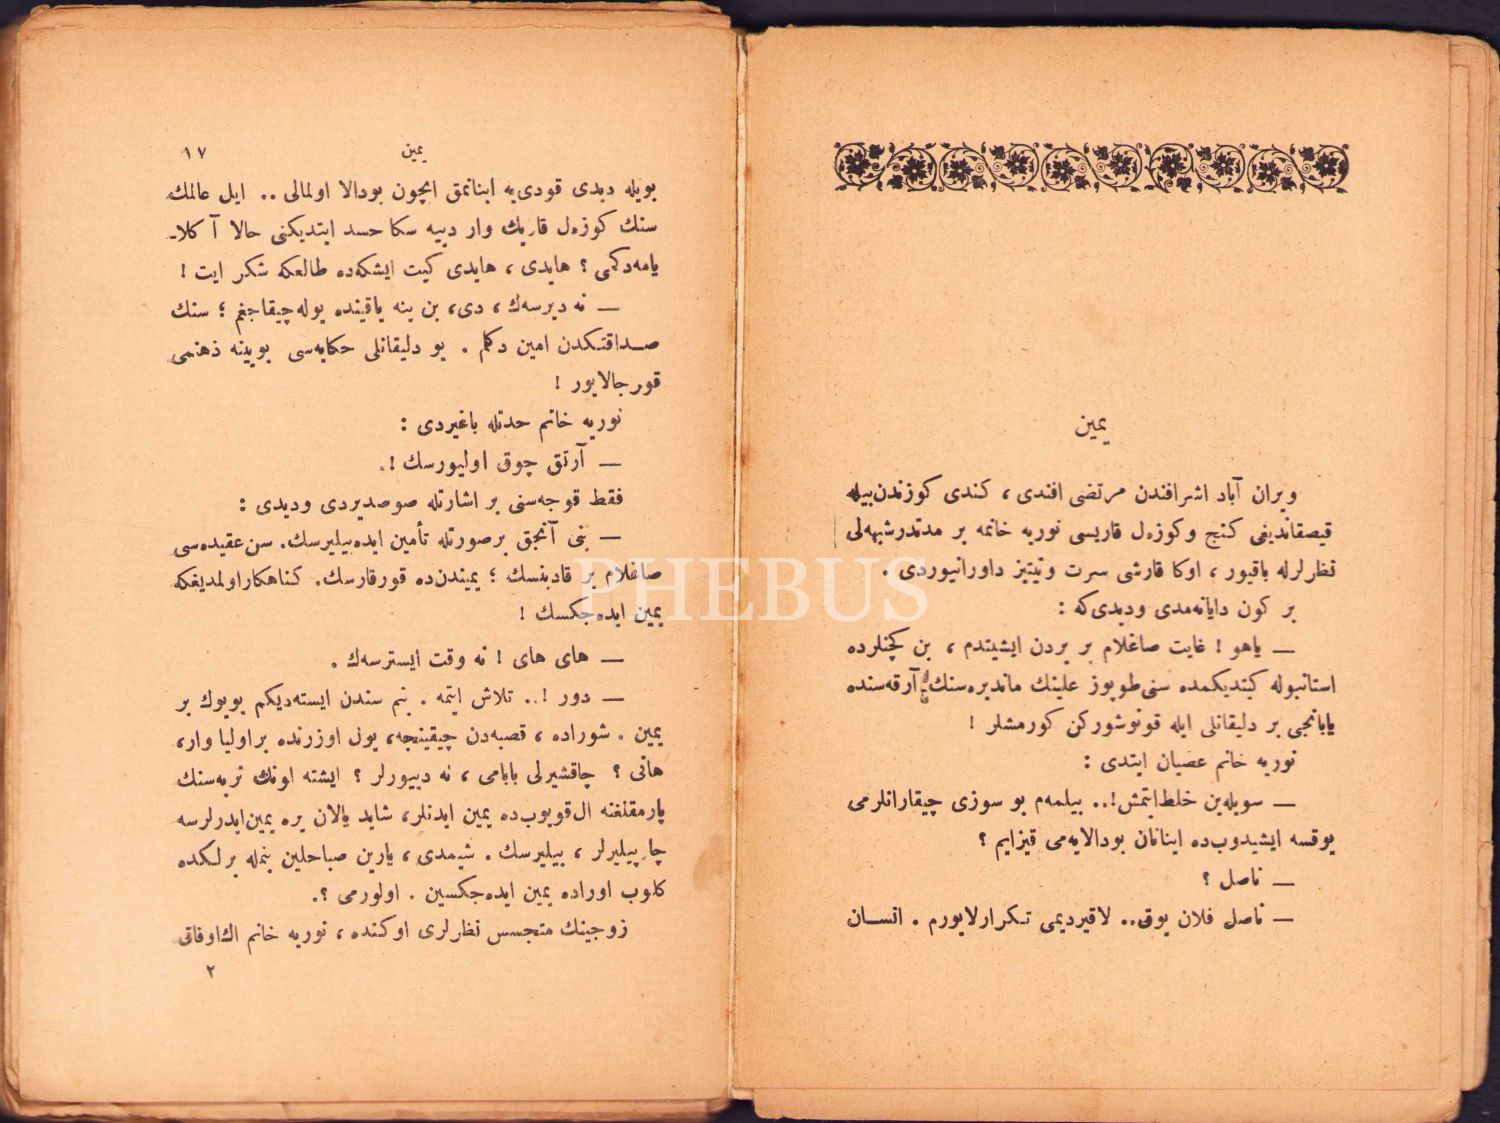 يمين
ويران آباد اشرافندن مرتضى افندى، كندى كوزندن بيله
قيصقانديغى كنج وكوزه‌ل قاريسى نوريه خانمه بر مدتدر شبهه‌لى
نظرلرله باقيور، اوكا قارشى سرت وتيتيز داورانيوردى.
بر كون دايانه‌مدى وديدى كه:
— ياهو! غايت صاغلام بر يردن ايشيتدم، بن كچنلرده
استانبوله كيتديكمده سنى طوپوز علينك مانديره‌سنك آرقه‌سنده
يابانجى بر دليقانلى ايله قونوشوركن كورمشلر!
نوريه خانم عصيان ايتدى:
— سويله‌ين خلط ايتمش!.. بيلمه‌م بو سوزى چيقارانلرمى
يوقسه ايشيدوب‌ده اينانان بودالايه‌مى قيزايم؟
— ناصل؟
— ناصل فلان يوق.. لاقيرديمى تكرارلايورم. انسان
يمين ١٧
بويله ديدى قودى‌يه اينانمق ايچون بودالا اولمالى.. ايل عالمك
سنك كوزه‌ل قاريك وار دييه سكا حسد ايتديكنى حالا آكلا-
يامه‌دكمى؟ هايدى، هايدى كيت ايشكه‌ده طالعكه شكر ايت!
— نه ديرسه‌ك، دى، بن ينه ياقينده يوله چيقاجغم؛ سنك
صداقتكدن امين دكلم. بو دليقانلى حكايه‌سى بويينه ذهنمى
قورجالايور!
نوريه خانم حدتله باغيردى:
— آرتق چوق اوليورسك!.
فقط قوجه‌سنى بر اشارتله صوصديردى وديدى:
— بنى آنجق بر صورتله تأمين ايده‌بيليرسك. سن عقيده‌سى
صاغلام بر قادينسك؛ يميندن‌ده قورقارسك. كناهكار اولمديغكه
يمين ايده‌جكسك!
— هاى هاى! نه وقت ايسترسه‌ك.
— دور!.. تلاش ايتمه. بنم سندن ايسته‌ديكم بويوك بر
يمين. شوراده، قصبه‌دن چيقينجه، يول اوزرنده بر اوليا وار،
هانى؟ چاقشيرلى بابامى، نه دييورلر؟ ايشته اونك تربه‌سنك
پارمقلغنه ال قويوب‌ده يمين ايدنلر، شايد يالان يره يمين ايدرلرسه
چارپيليرلر، بيليرسك. شيمدى، يارين صباحلين بنمله برلكده
كلوب اوراده يمين ايده‌جكسين. اولورمى؟.
زوجينك متجسس نظرلرى اوكنده، نوريه خانم اك اوفاق
٢
PHEBUS